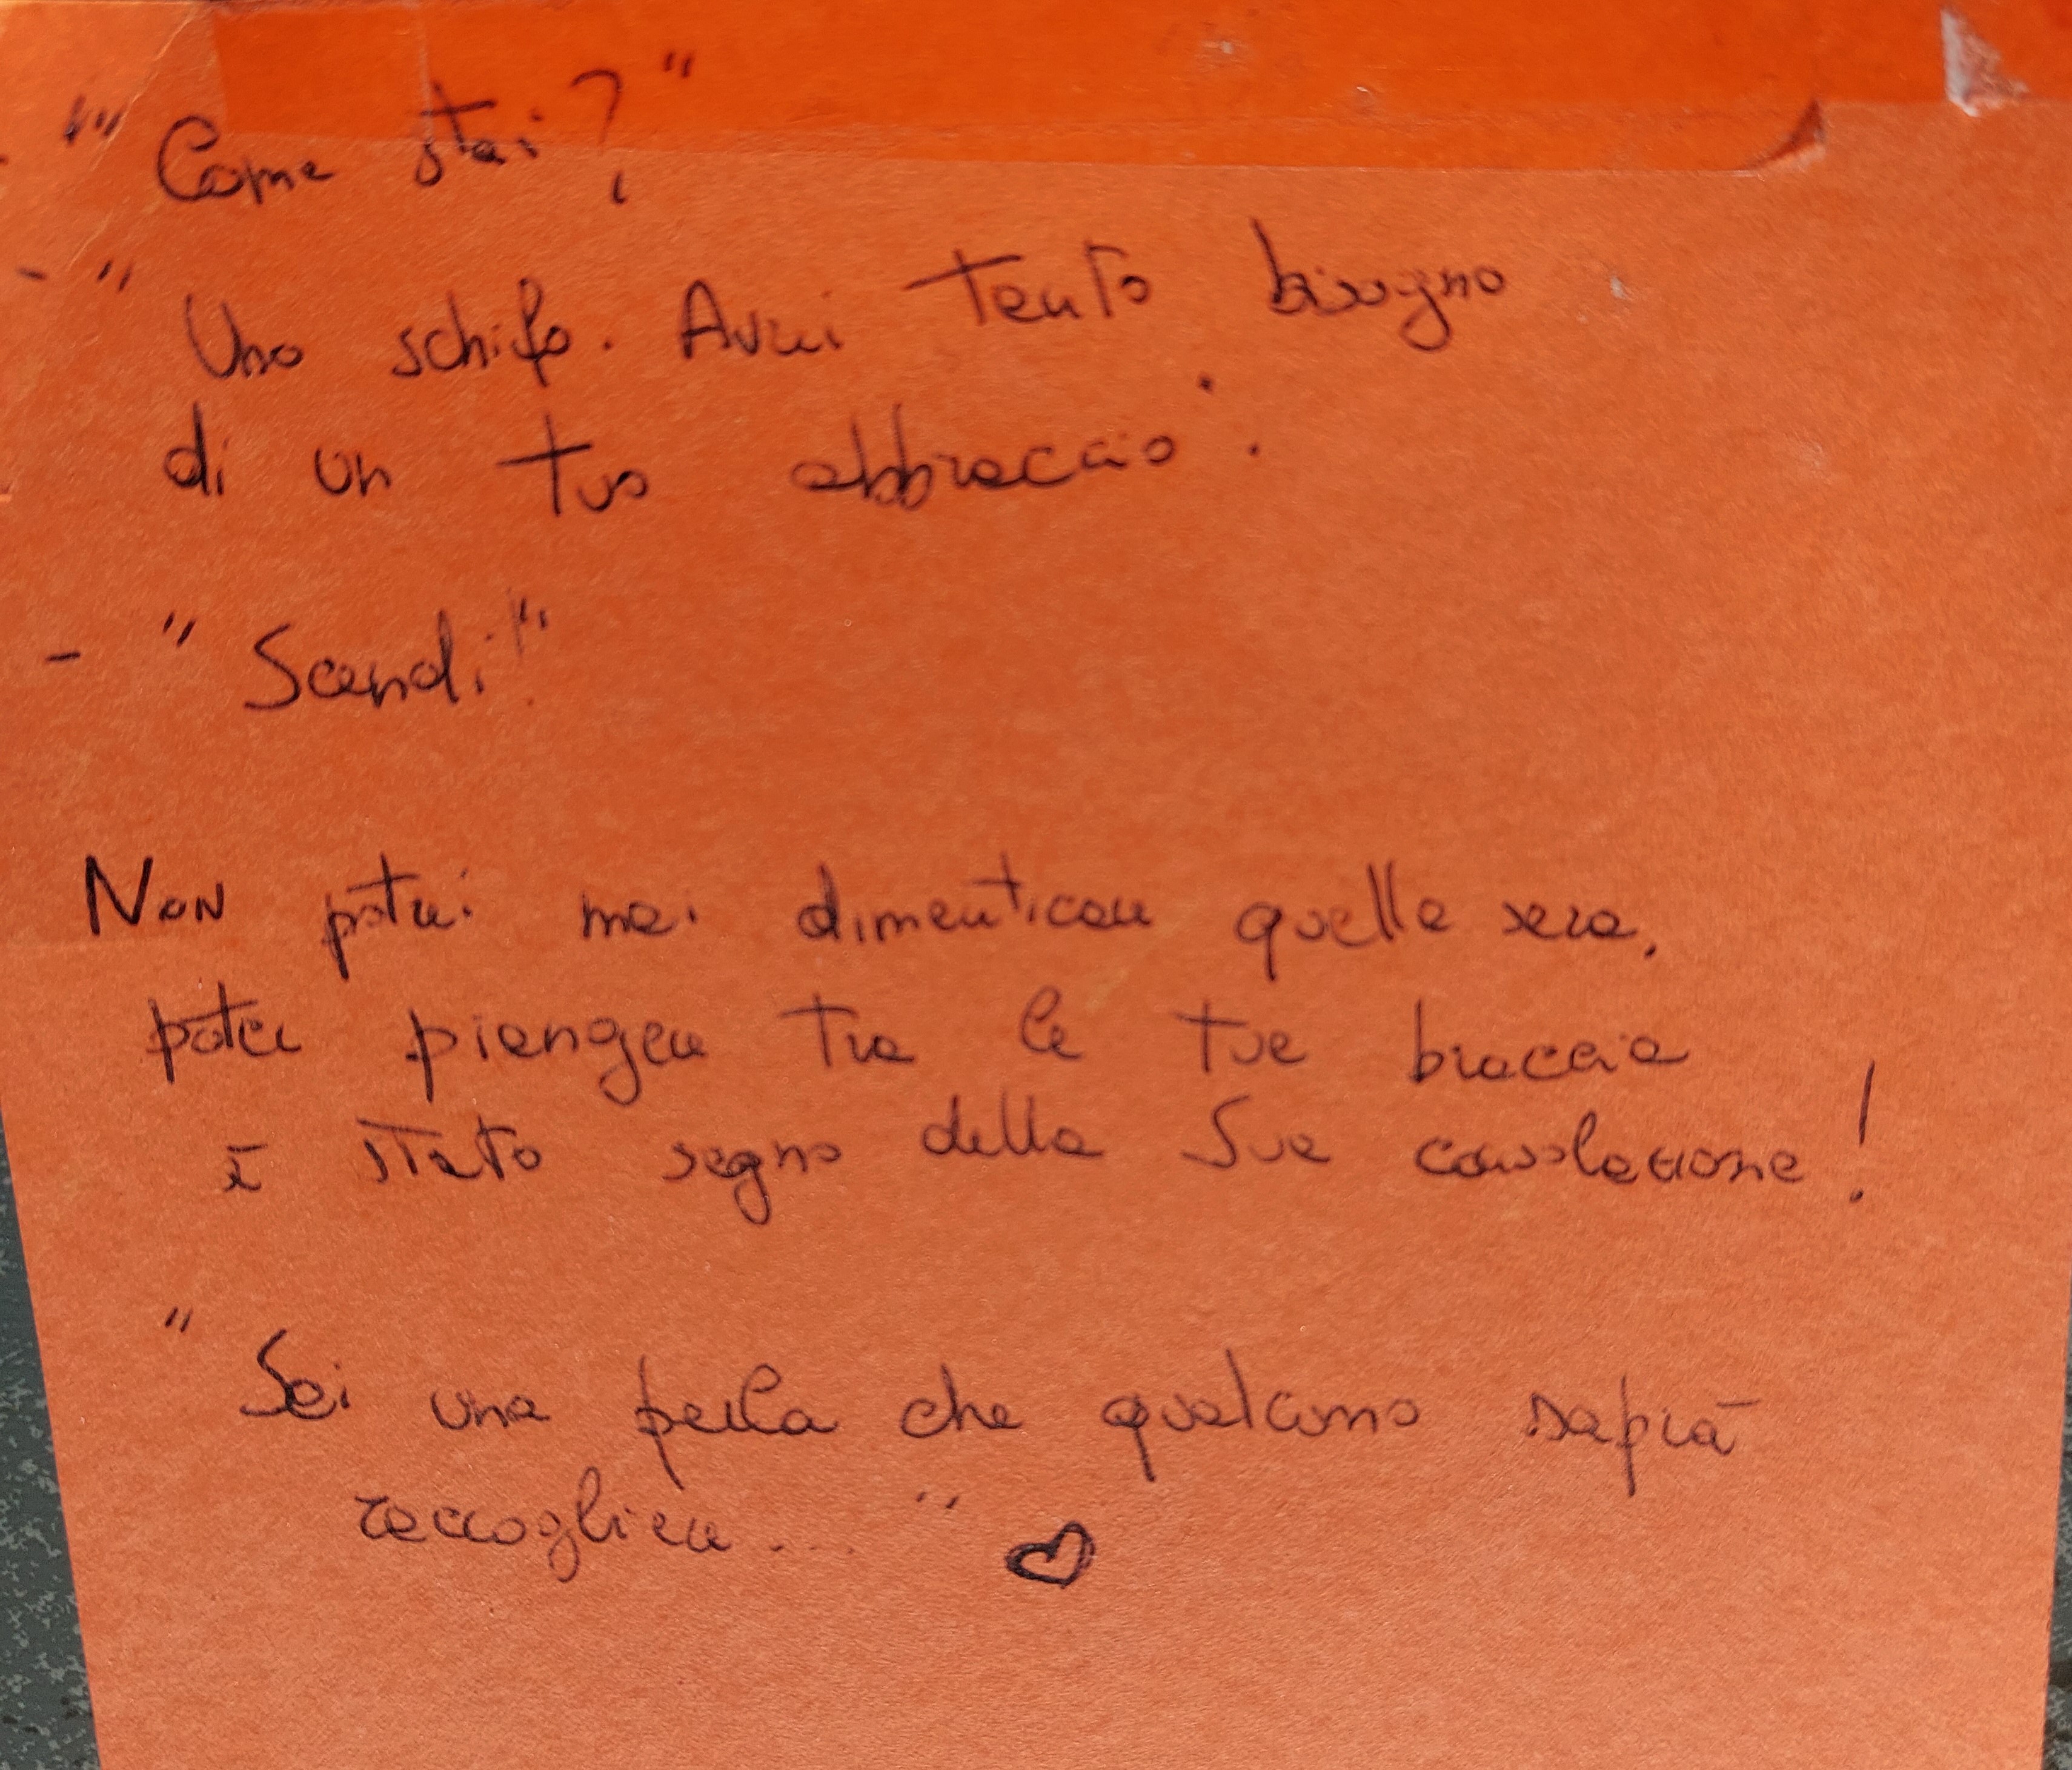 - "Come stai?"
- "Uno schifo. Avrei tanto bisogno
di un tuo abbraccio".
- "Scendi!"
Non potrei mai dimenticare quella sera,
poter piangere tra le tue braccia
è stato segno della Sua consolazione!
"Sei una perla che qualcuno saprà
raccogliere..." ♡